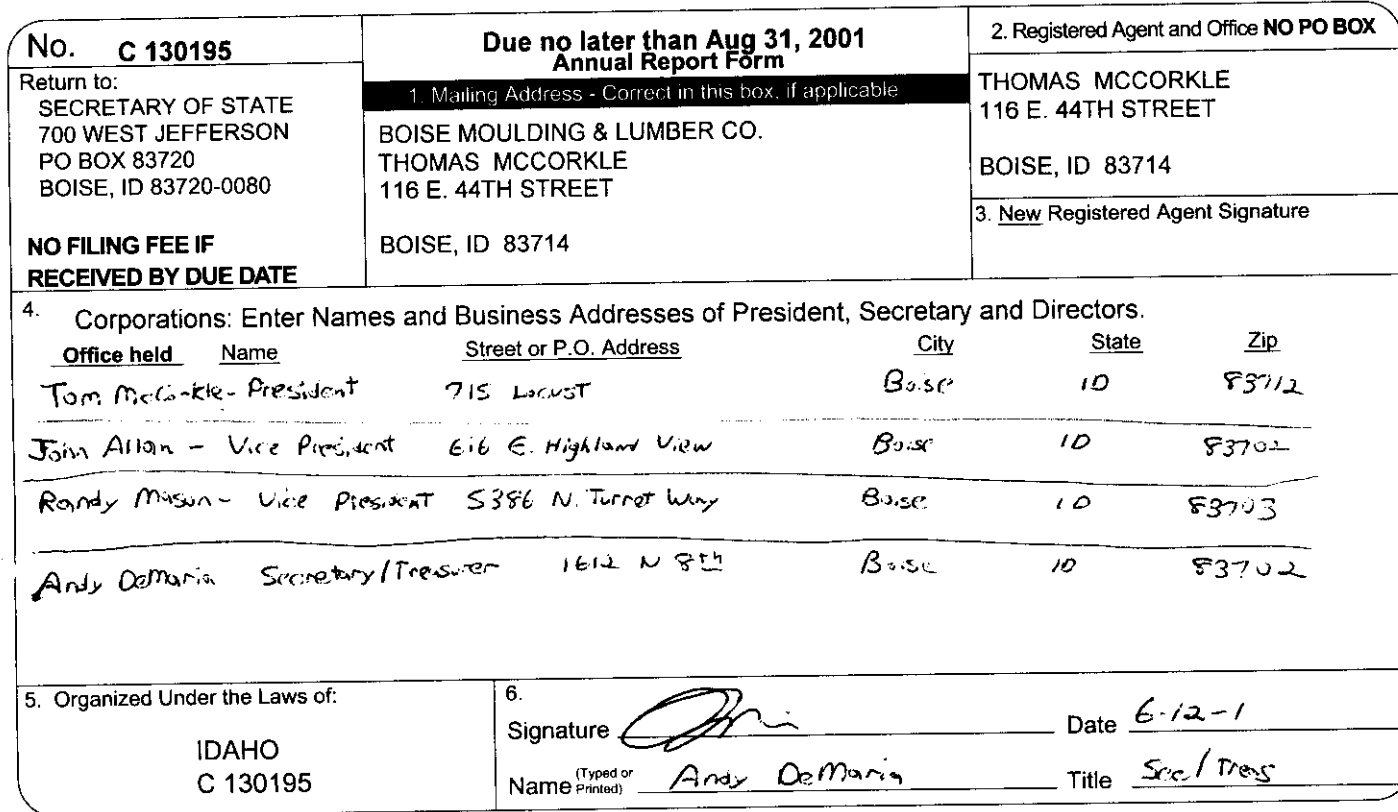 No. C 130195
Return to:
SECRETARY OF STATE
700 WEST JEFFERSON
PO BOX 83720
BOISE, ID 83720-0080
NO FILING FEE IF
RECEIVED BY DUE DATE
Due no later than Aug 31, 2001
Annual Report Form
1. Mailing Address - Correct in this box, if applicable
BOISE MOULDING & LUMBER CO.
THOMAS MCCORKLE
116 E. 44TH STREET
BOISE, ID 83714
2. Registered Agent and Office NO PO BOX
THOMAS MCCORKLE
116 E. 44TH STREET
BOISE, ID 83714
3. New Registered Agent Signature
4. Corporations: Enter Names and Business Addresses of President, Secretary and Directors.
Office held Name Street or P.O. Address City State Zip
Tom McCorkle - President 715 Locust Boise ID 83712
John Allan - Vice President 616 E. Highland View Boise ID 83702
Randy Mason - Vice President 5386 N. Turret Way Boise ID 83703
Andy DeMaria Secretary/Treasurer 1612 N 8th Boise ID 83702
5. Organized Under the Laws of:
IDAHO
C 130195
6.
Signature Date 6-12-1
Name (Typed or Printed) Andy DeMaria Title Sec/Treas